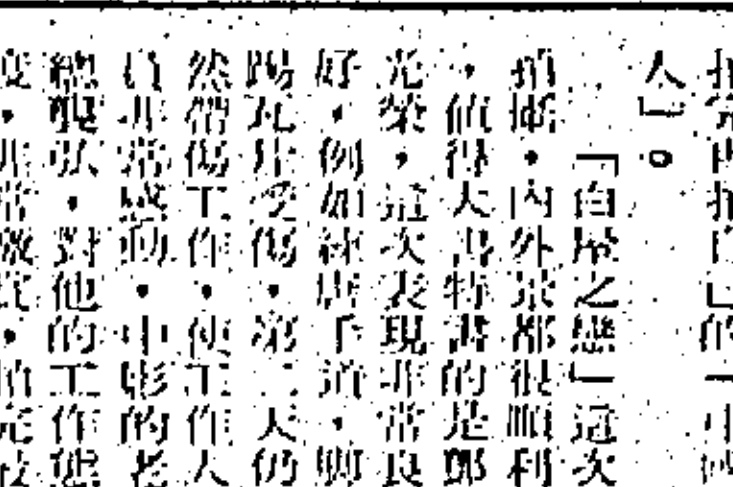 人」。
「白屋之戀」這次
拍攝,內外景都很順利
,值得大書特書的是鄧
光榮,這次表現非常良
好,例如練唐手道,腳
踢瓦片受傷,第二天仍
然帶傷工作,使工作人
員非常感動,中影的老
總龔弘,對他的工作態
度,非常